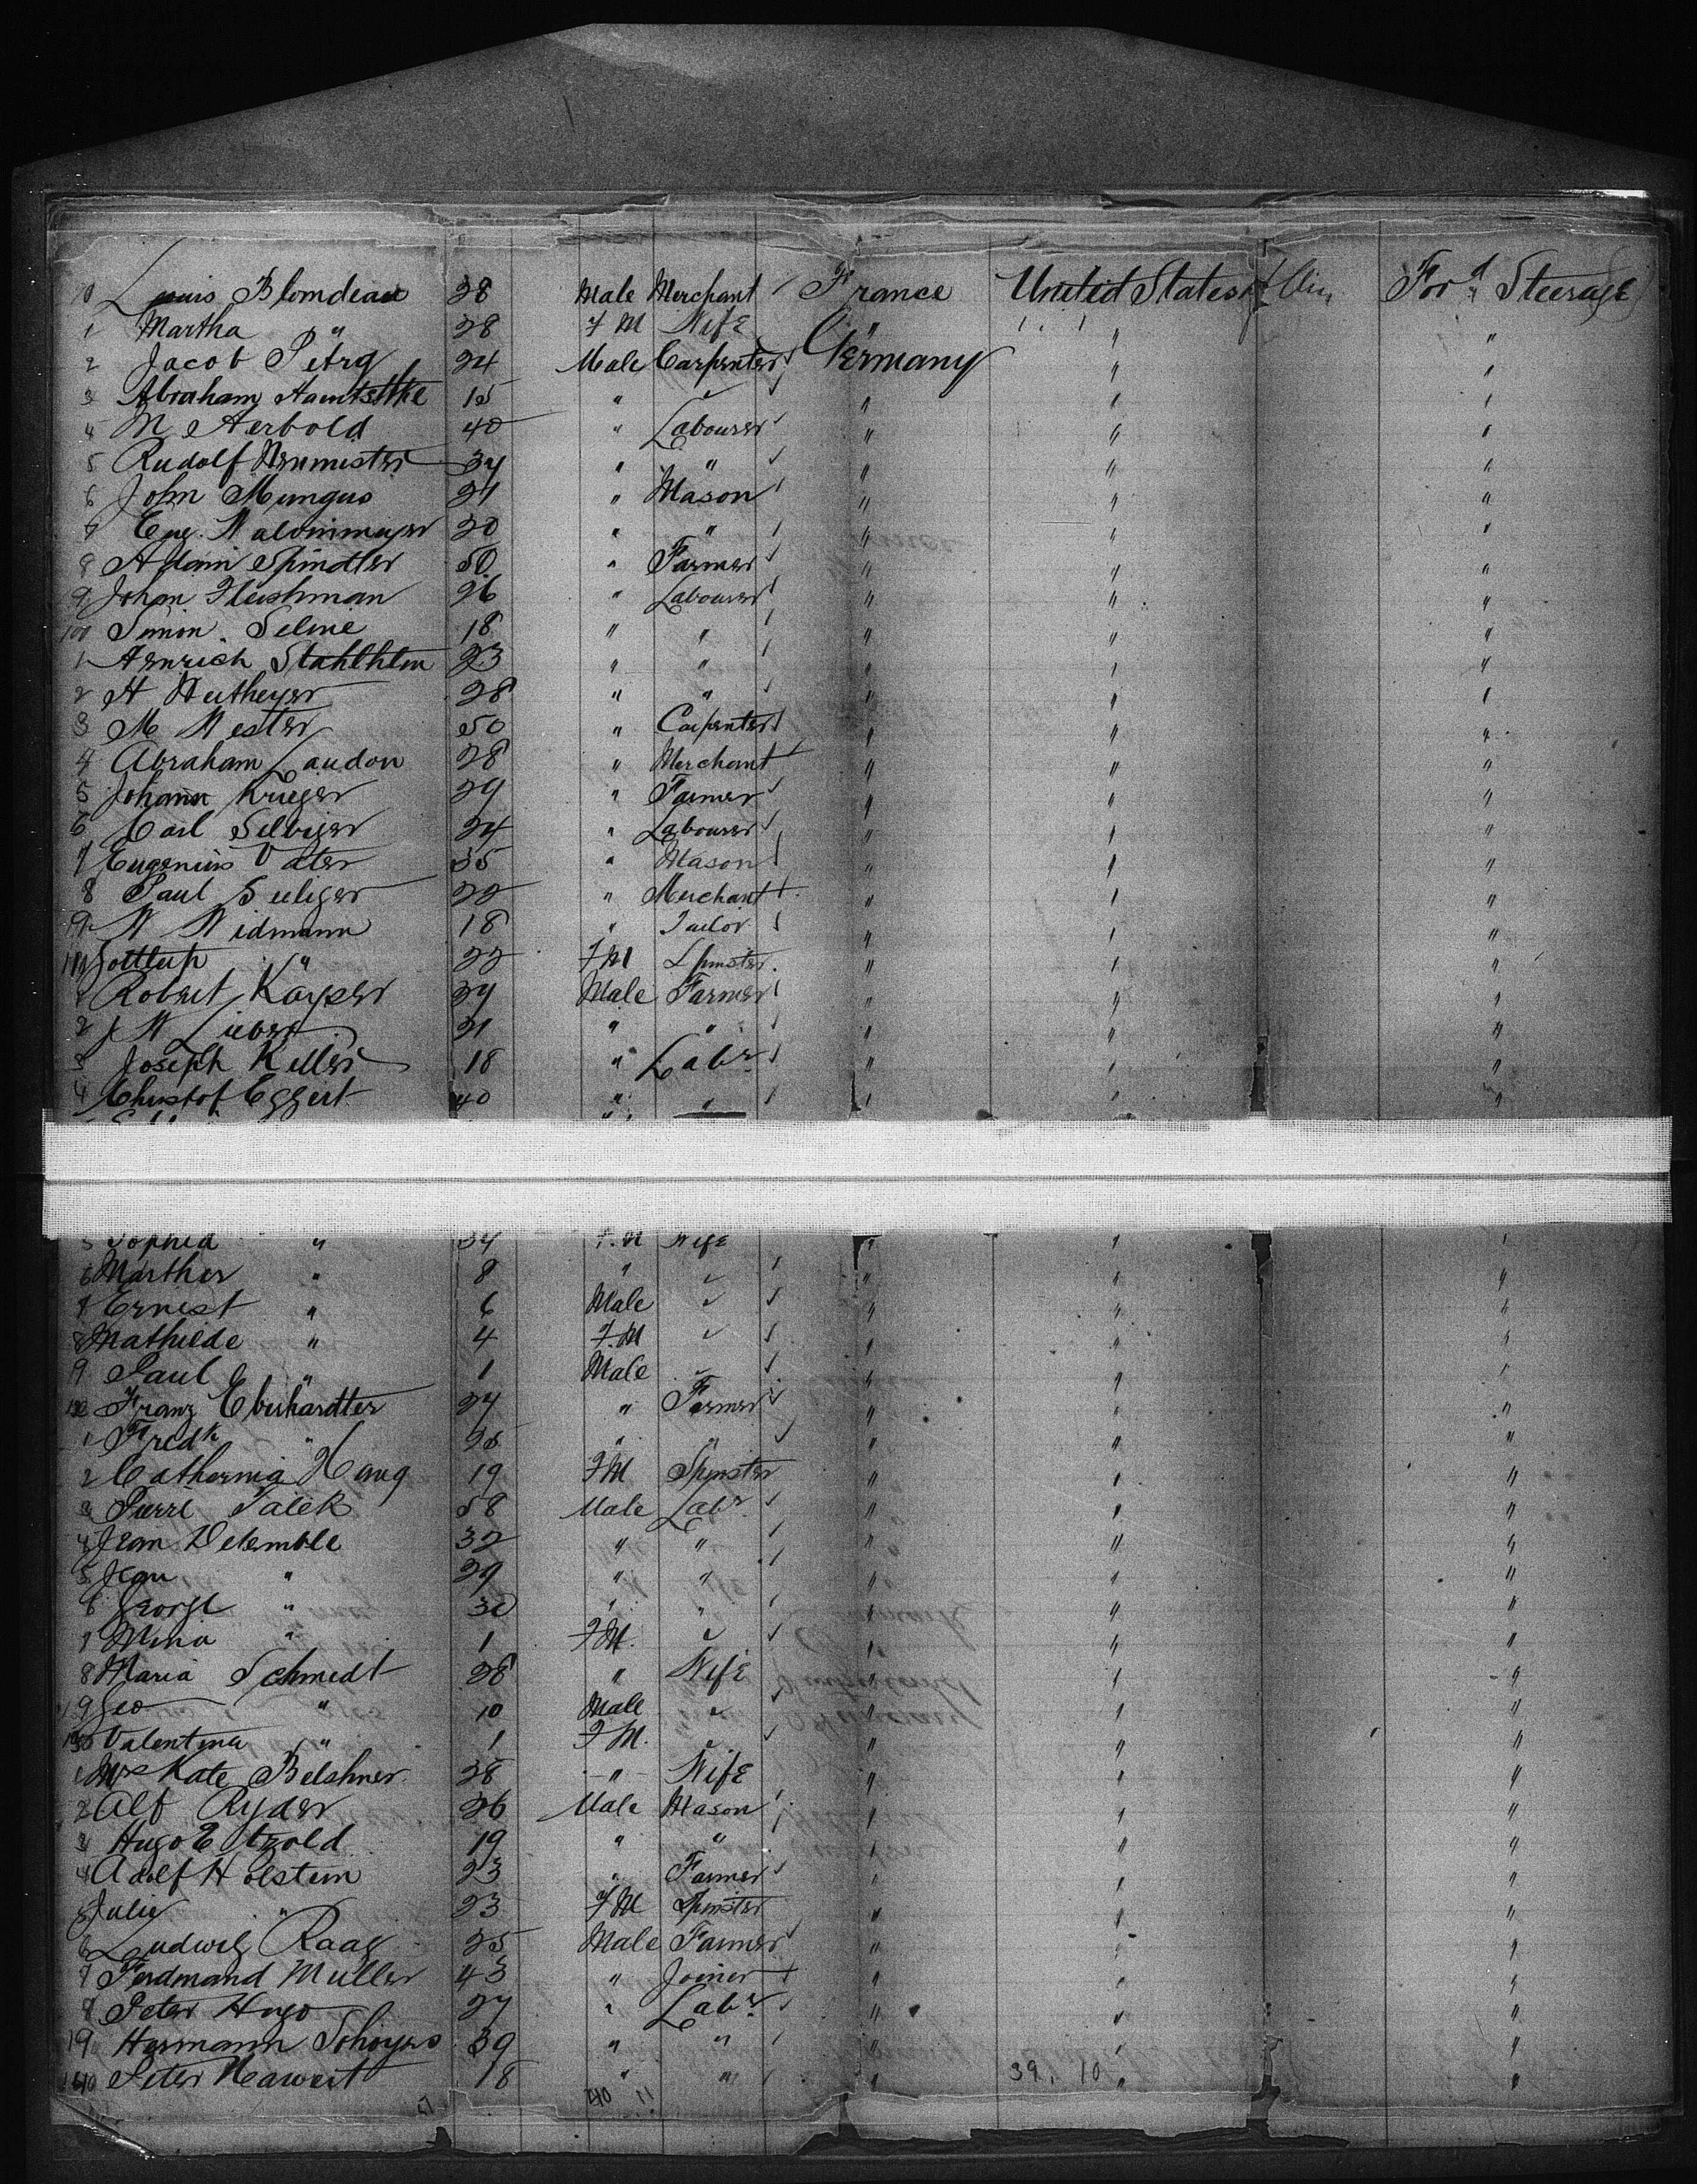 90 Louis Blomdeau 38 Male Merchant France United States For'd Steerage
1 Martha " 28 F M Wife " " "
2 Jacob Petry 24 Male Carpenter Germany " "
3 Abraham 15 " " " "
4 M Herbold 40 " Labourer " " "
5 Rudolf 34 " " " " "
6 John Mungus 21 " Mason " " "
7 Eug. 20 " " " " "
8 Adam Spindler 50 " Farmer " " "
9 Johan Fleishman 26 " Labourer " " "
100 Simon Selme 18 " " " " "
1 Henrich 23 " " " " "
2 H 28 " " " " "
3 M Wester 50 " Carpenter " " "
4 Abraham Laudon 28 " Merchant " " "
5 Johann Krieger 29 " Farmer " " "
6 Carl Selbiger 24 " Labourer " " "
7 Eugenius Vater 35 " Mason " " "
8 Paul Seeliger 22 " Merchant " " "
9 W Widmann 18 " Tailor " " "
110 Gottlup " 22 F M Spinster " " "
1 Robert Kayser 34 Male Farmer " " "
2 21 " " " " "
3 Joseph Keller 18 " Labr " " "
4 Christof Eggert 40 " " " " "
5 Sophia " 34 F. M Wife " " "
6 Marther " 8 " " " "
7 Ernest " 6 Male " " "
8 Mathilde " 4 F. M " " "
9 Paul " 1 Male " " "
120 Franz Eberhardter 24 " Farmer " " "
1 Fredk " 25 " " " " "
2 Catherina Haug 19 F M Spinster " " "
3 Pierre Palek 58 Male Labr " " "
4 Jean Detemble 32 " " " " "
5 Jean " 29 " " " " "
6 George " 30 " " " " "
7 Mina " 1 F M. " " "
8 Maria Schmedt 28 " Wife " " "
9 Geo " 10 Male " " "
130 Valentina " 1 F M. " " "
1 Mrs Kate Belshner 28 " Wife " " "
2 Alf Ryder 26 Male Mason " " "
3 Hugo Etzold 19 " " " " "
4 Adolf Holstein 23 " Farmer " " "
5 Julie " 23 F M Spinster " " "
6 Ludwig Raag 25 Male Farmer " " "
7 Ferdinand Muller 43 " Joiner " " "
8 Peter Hugo 27 " Labr " " "
9 Hermann 39 " " " " "
140 Peter Hawert 18 " " " " "
40 11 39. 10